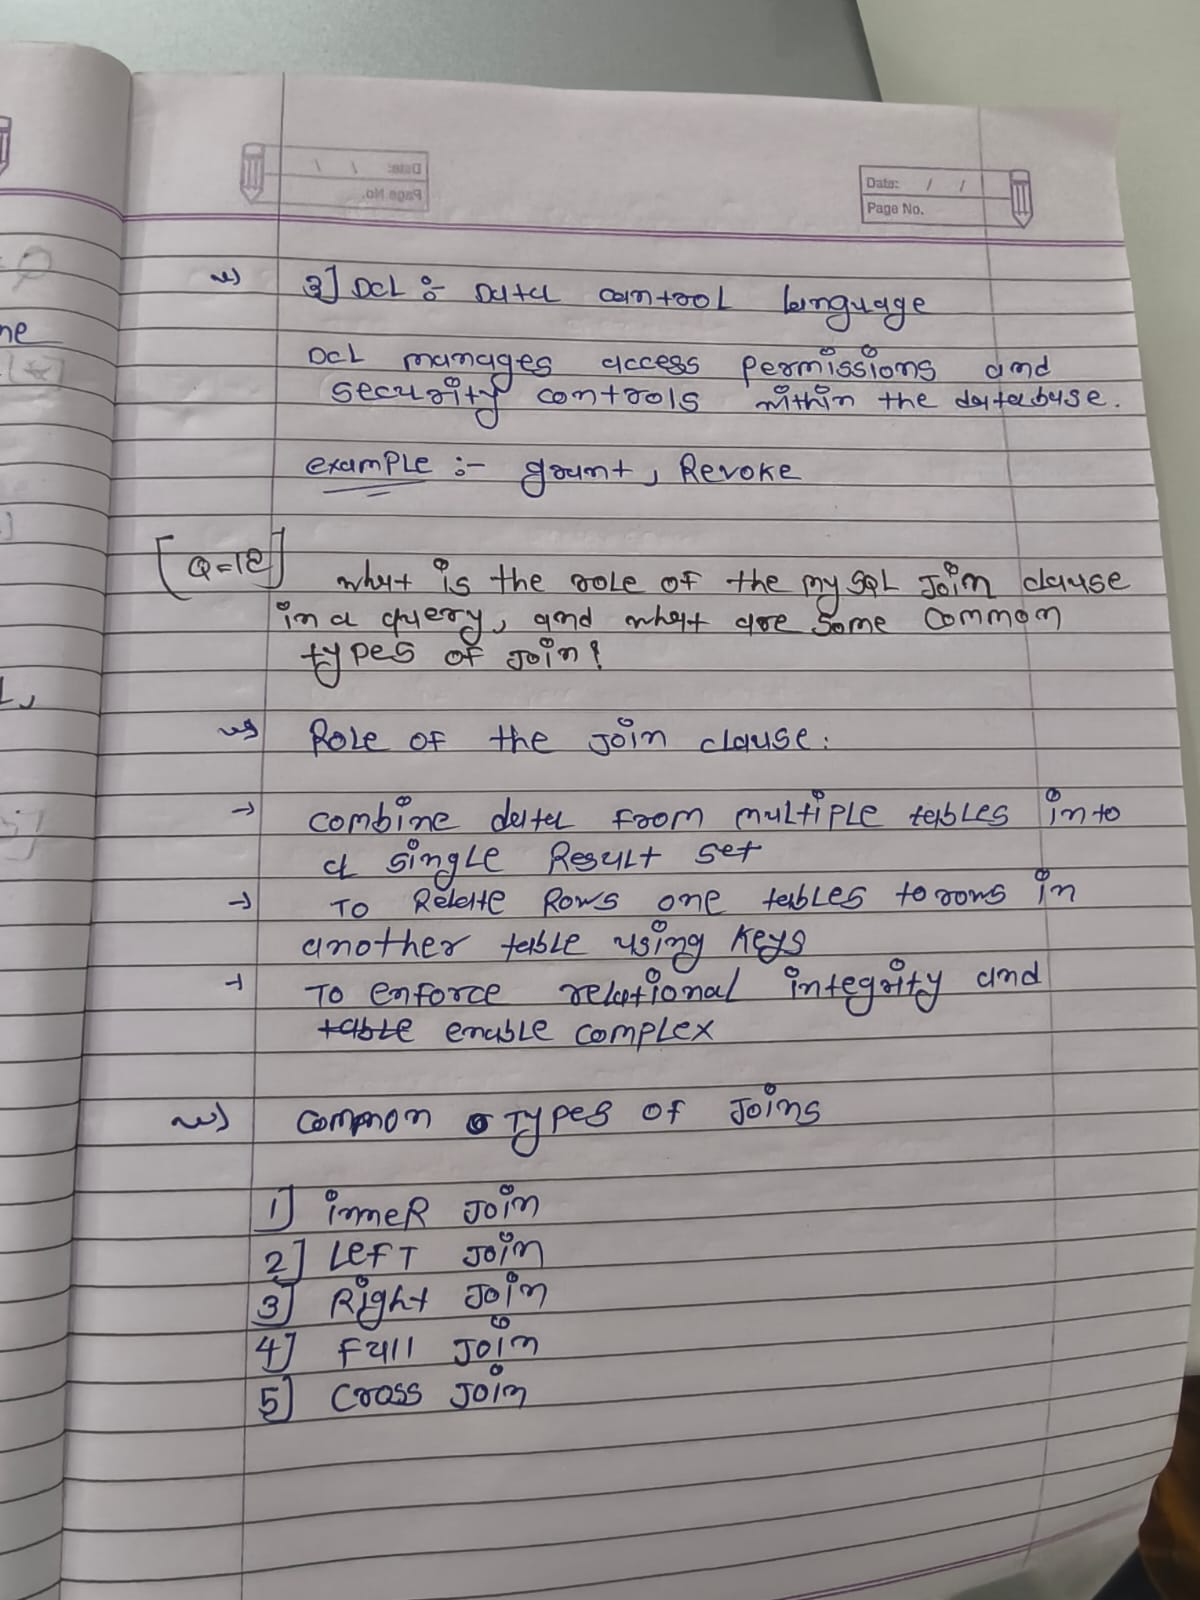 Date: / /
Page No.
3] DCL :- Data control language
DCL manages access permissions and
security controls within the database.
example :- grant, Revoke
[Q=12] what is the role of the mySQL Join clause
in a query, and what are some common
types of Join?
Role of the Join clause:
→ combine data from multiple tables into
a single Result set
→ To Relate Rows one tables to rows in
another table using keys
→ To enforce relational integrity and
table enable complex
Common Types of Joins
1] inner Join
2] Left Join
3] Right Join
4] Full Join
5] Cross Join